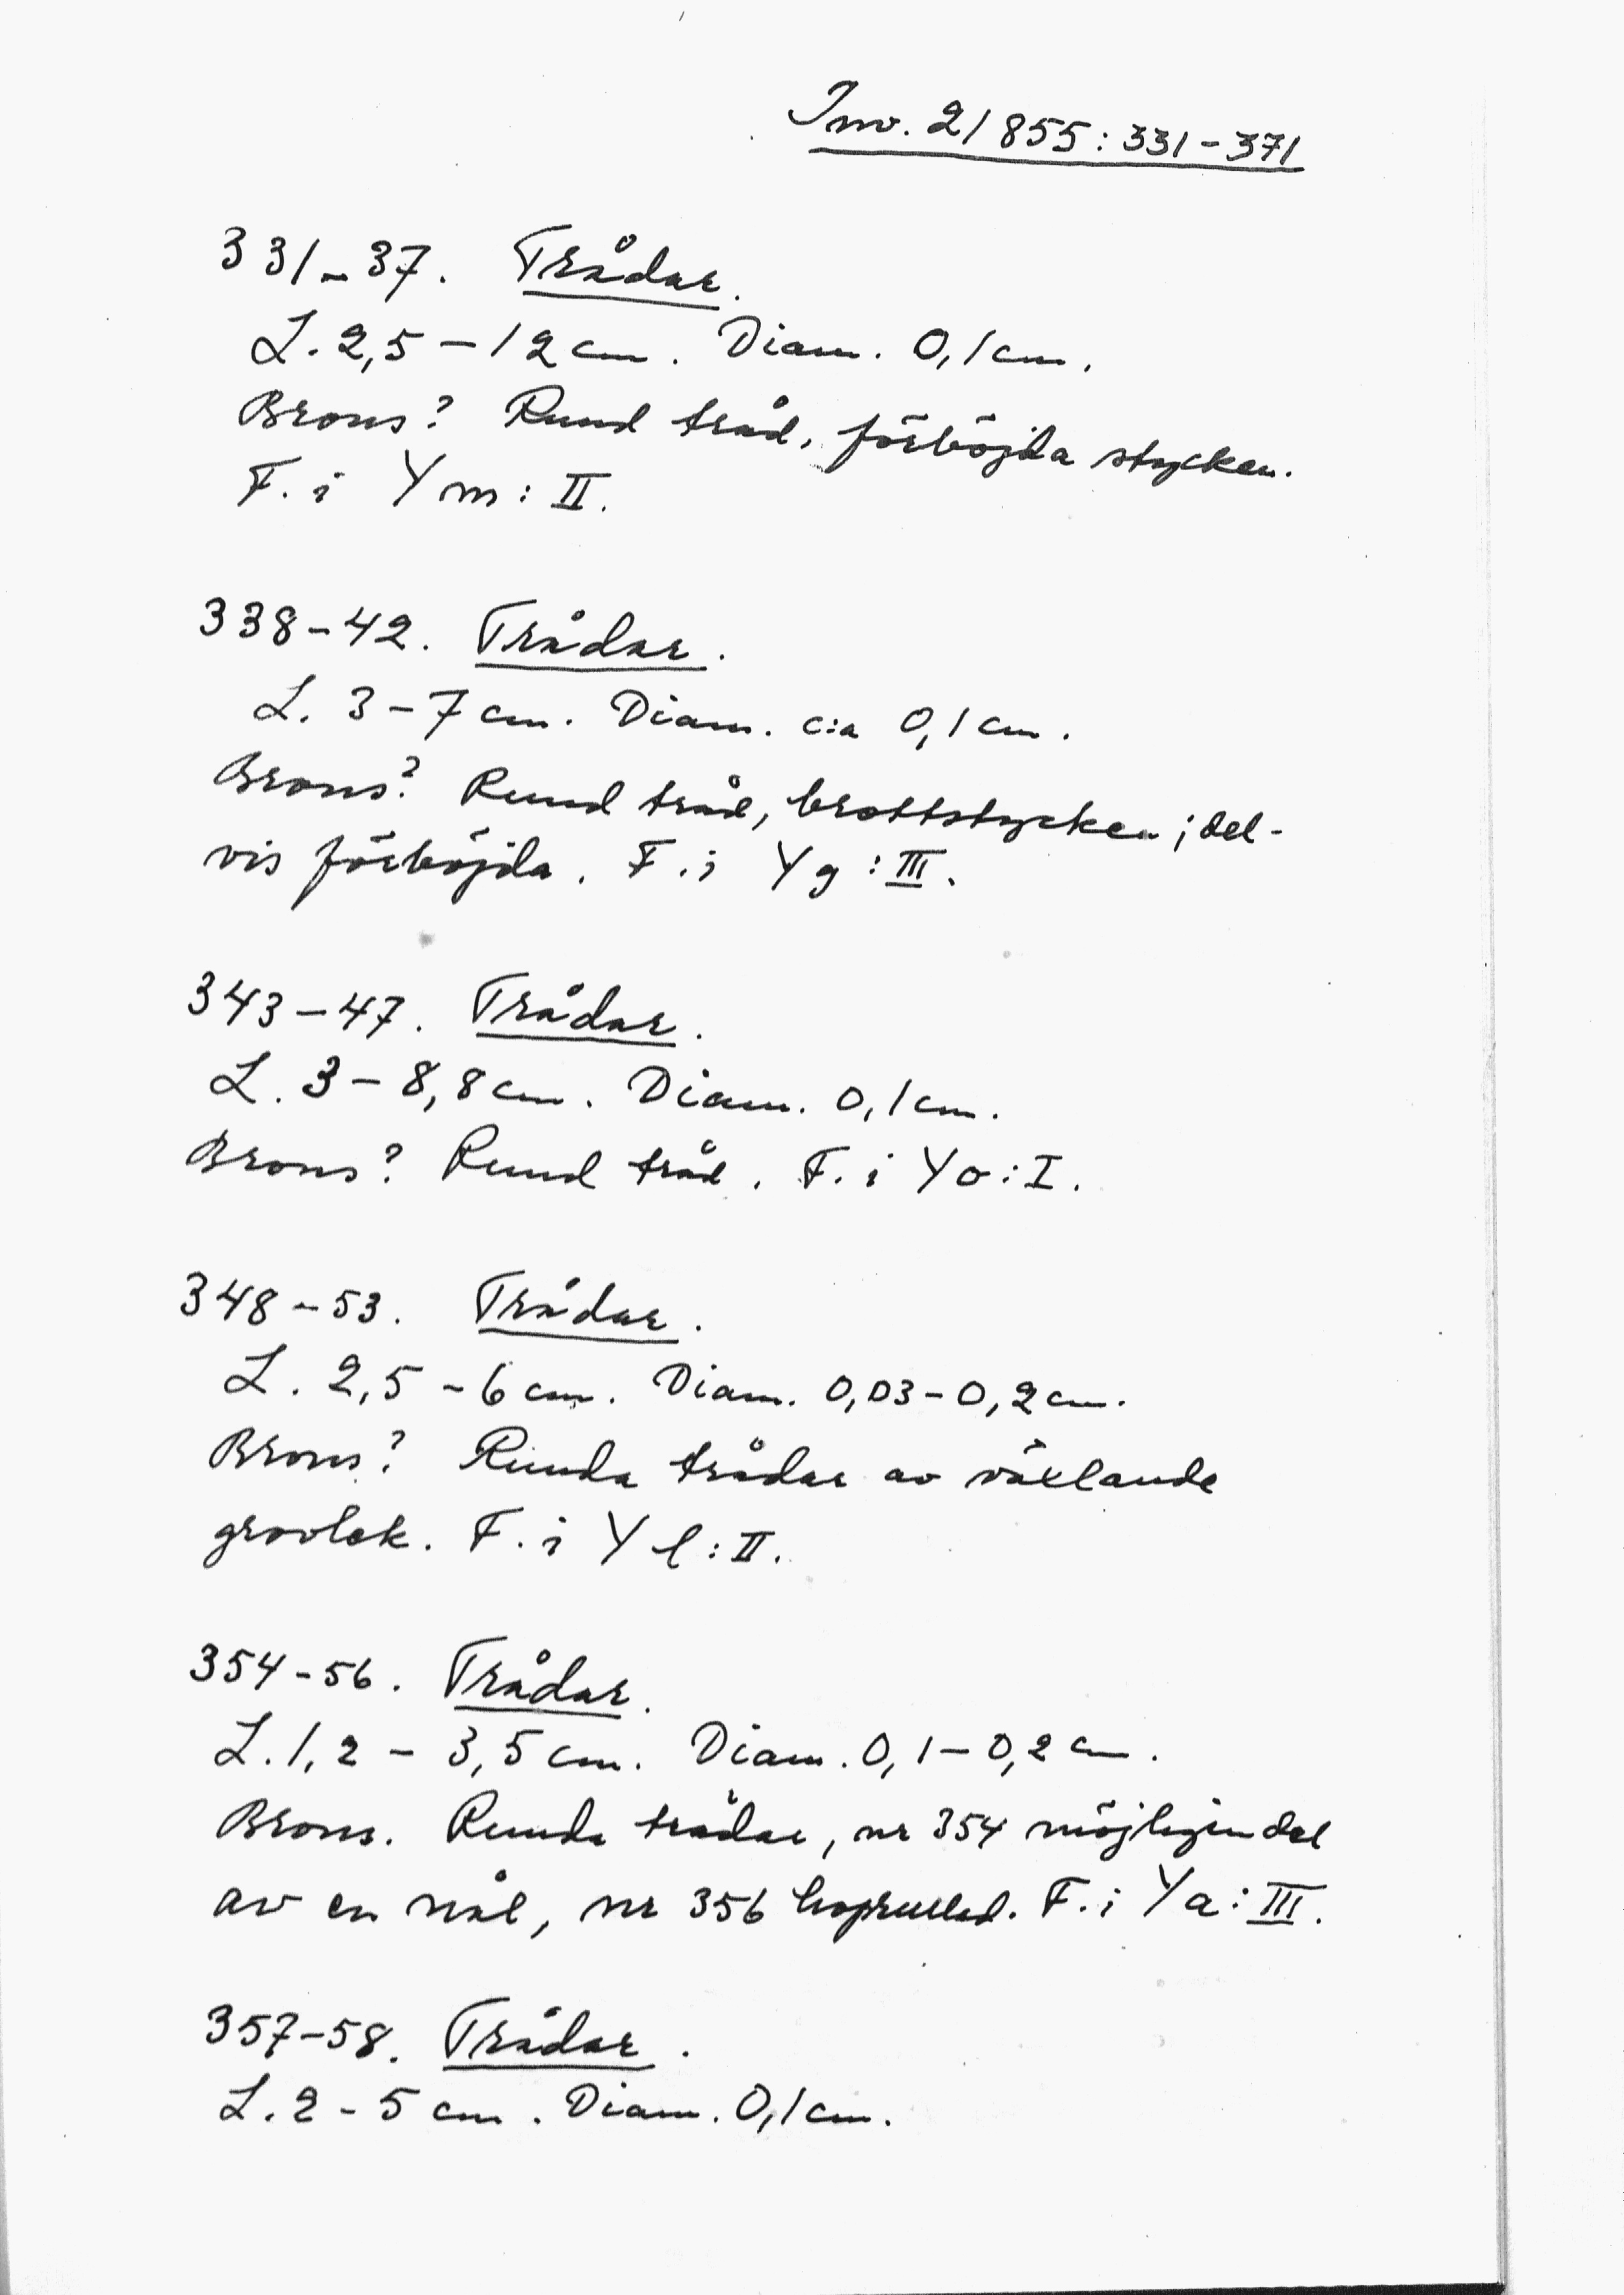 Inv. 21855:331-371
331-37. Trådar.
L. 2,5-12 cm. Diam. 0,1 cm.
Brons? Rund tråd, förböjda stycken.
F. i Ym:II.
338-42. Trådar.
L. 3-7 cm. Diam. c:a 0,1 cm.
Brons? Rund tråd, brottstycken; del-
vis förböjda. F. i Yg:III.
343-47. Trådar.
L. 3-8,8 cm. Diam. 0,1 cm.
Brons? Rund tråd. F. i Yo:I.
348-53. Trådar.
L. 2,5-6 cm. Diam. 0,03-0,2 cm.
Brons? Runda trådar av växlande
grovlek. F. i Yl:II.
354-56. Trådar.
L. 1,2-3,5 cm. Diam. 0,1-0,2 cm.
Brons. Runda trådar, nr 354 möjligen del
av en nål, nr 356 hoprullad. F. i Ya:III.
357-58. Trådar.
L. 2-5 cm. Diam. 0,1 cm.